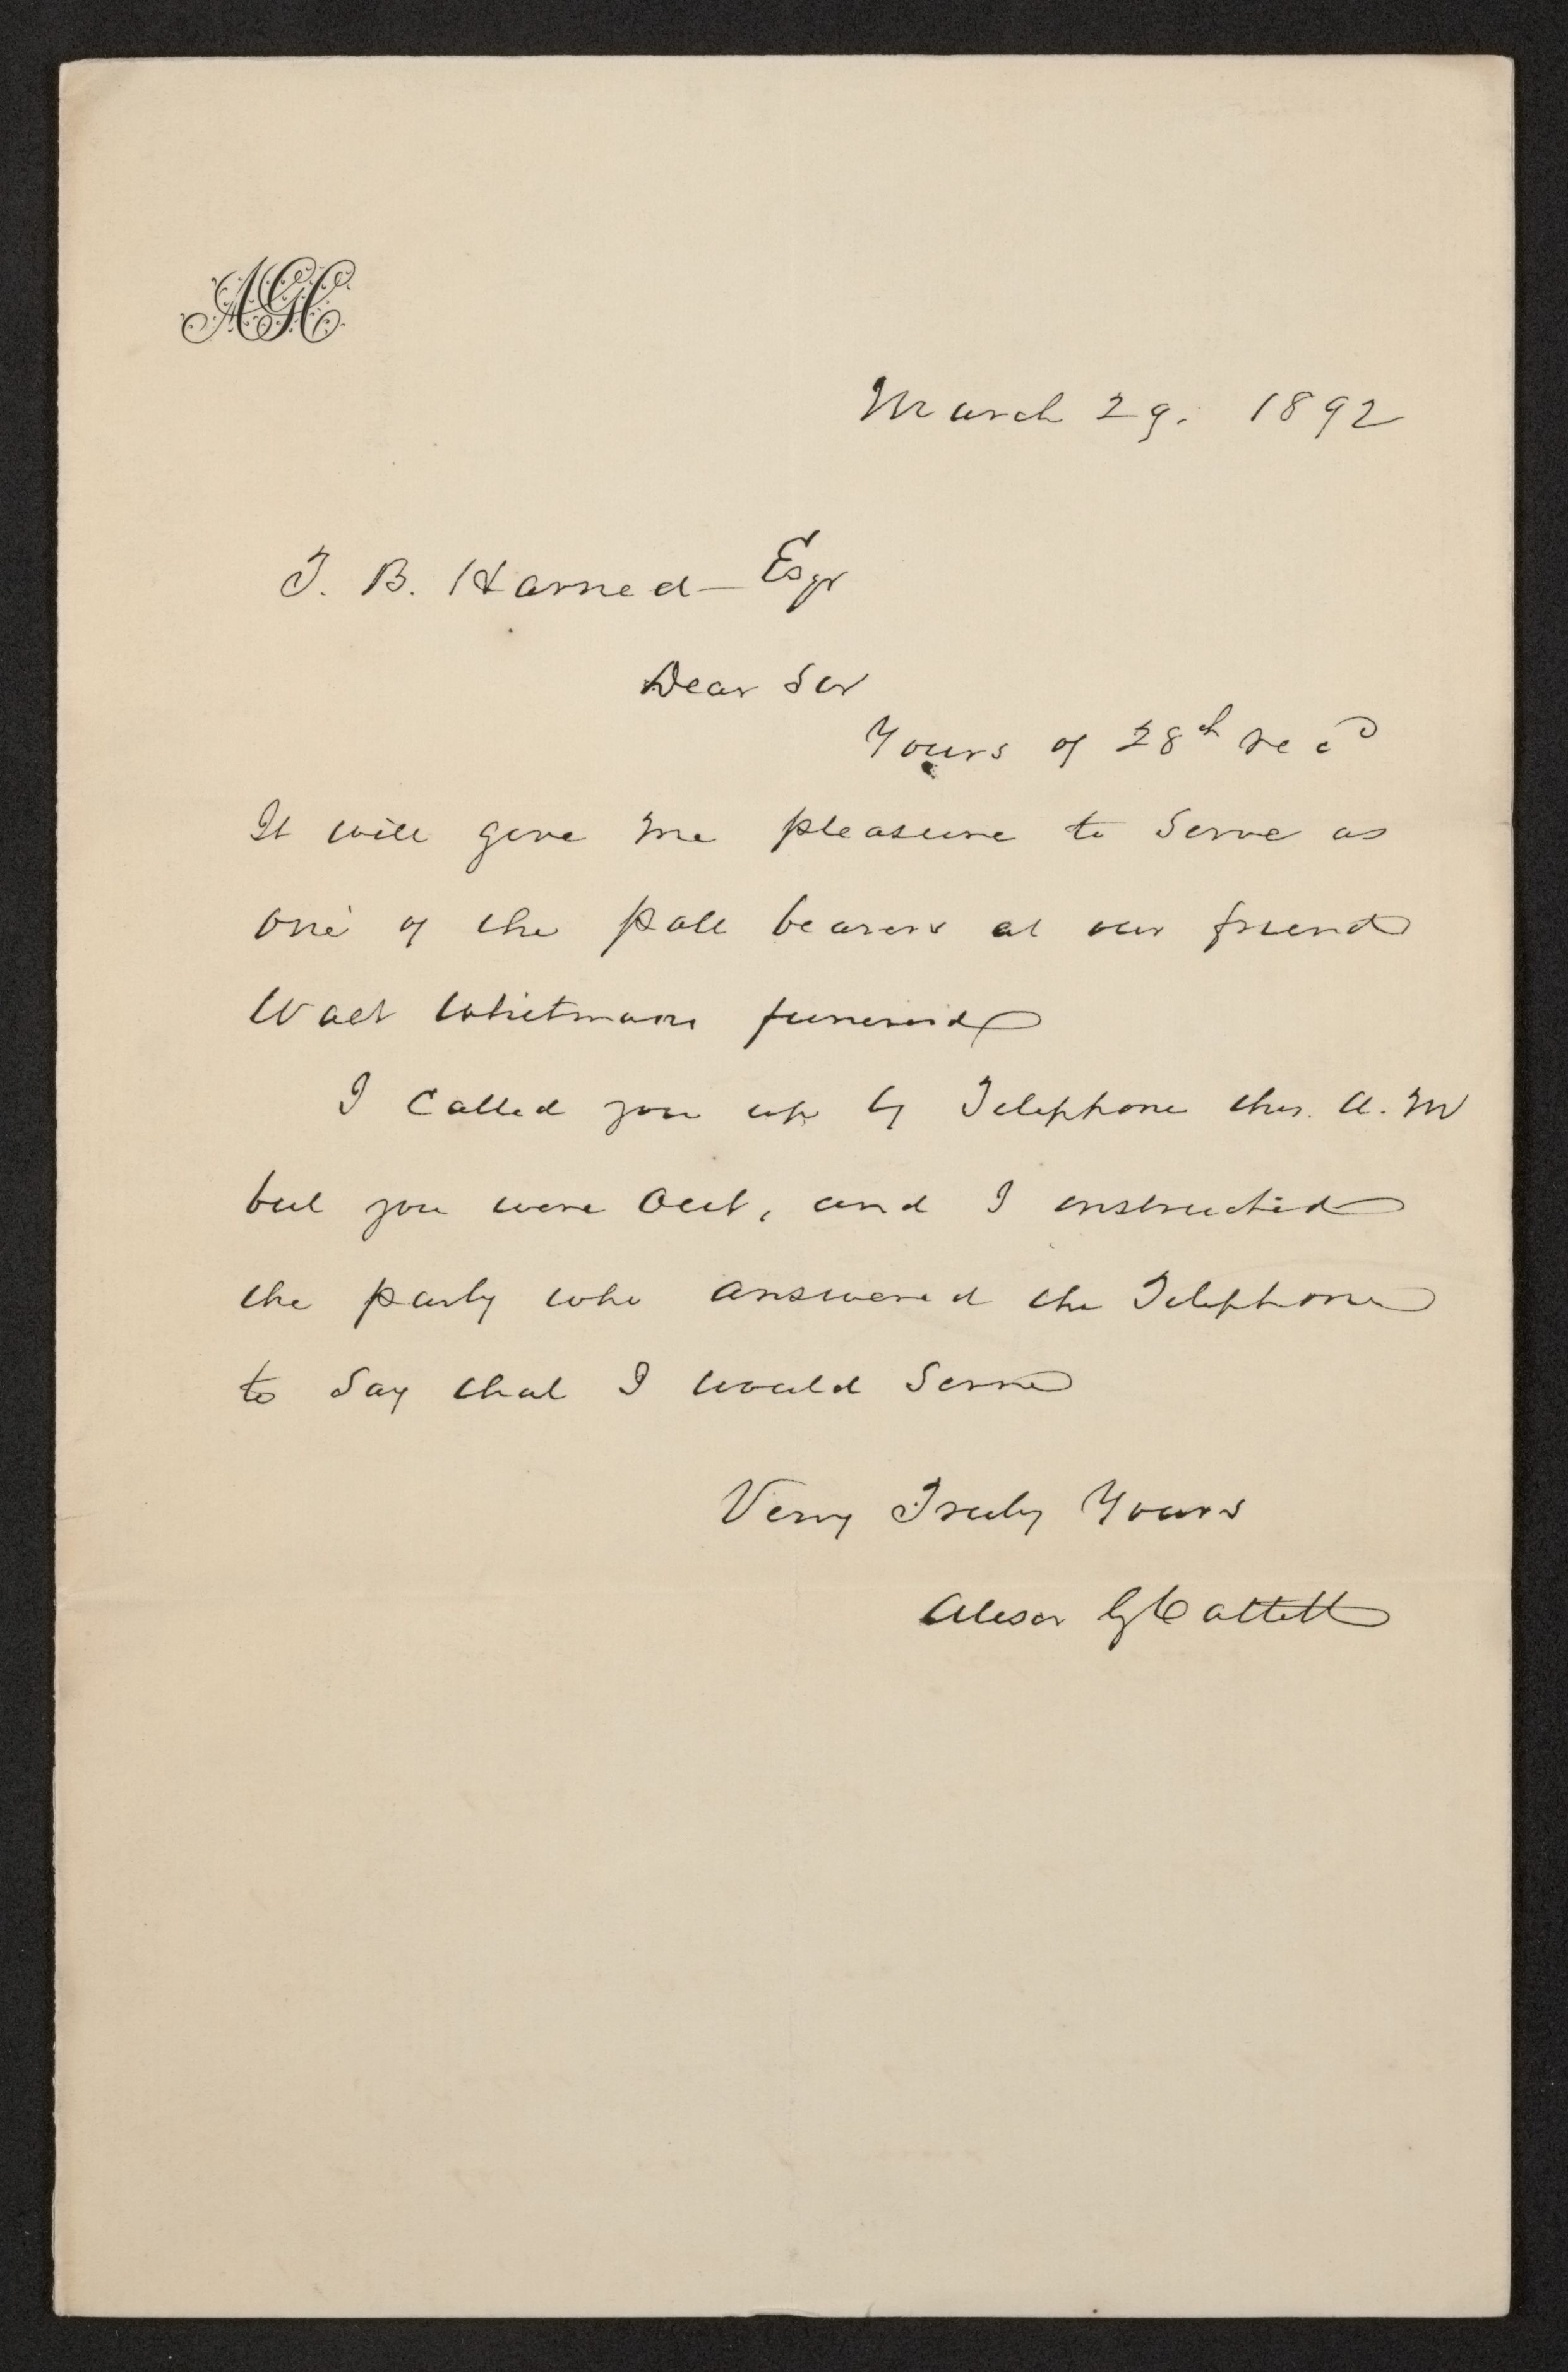 AGC
March 29. 1892
T. B. Harned - Esqr
Dear Sir
Yours of 28th recd
It will give me pleasure to serve as
one of the pall bearers at our friend
Walt Whitmans funeral
I Called you up by Telephone this A. M
but you were Out, and I instructed
the party who answered the Telephone
to Say that I would Serve
Very Truly Yours
Alexr G Cattell